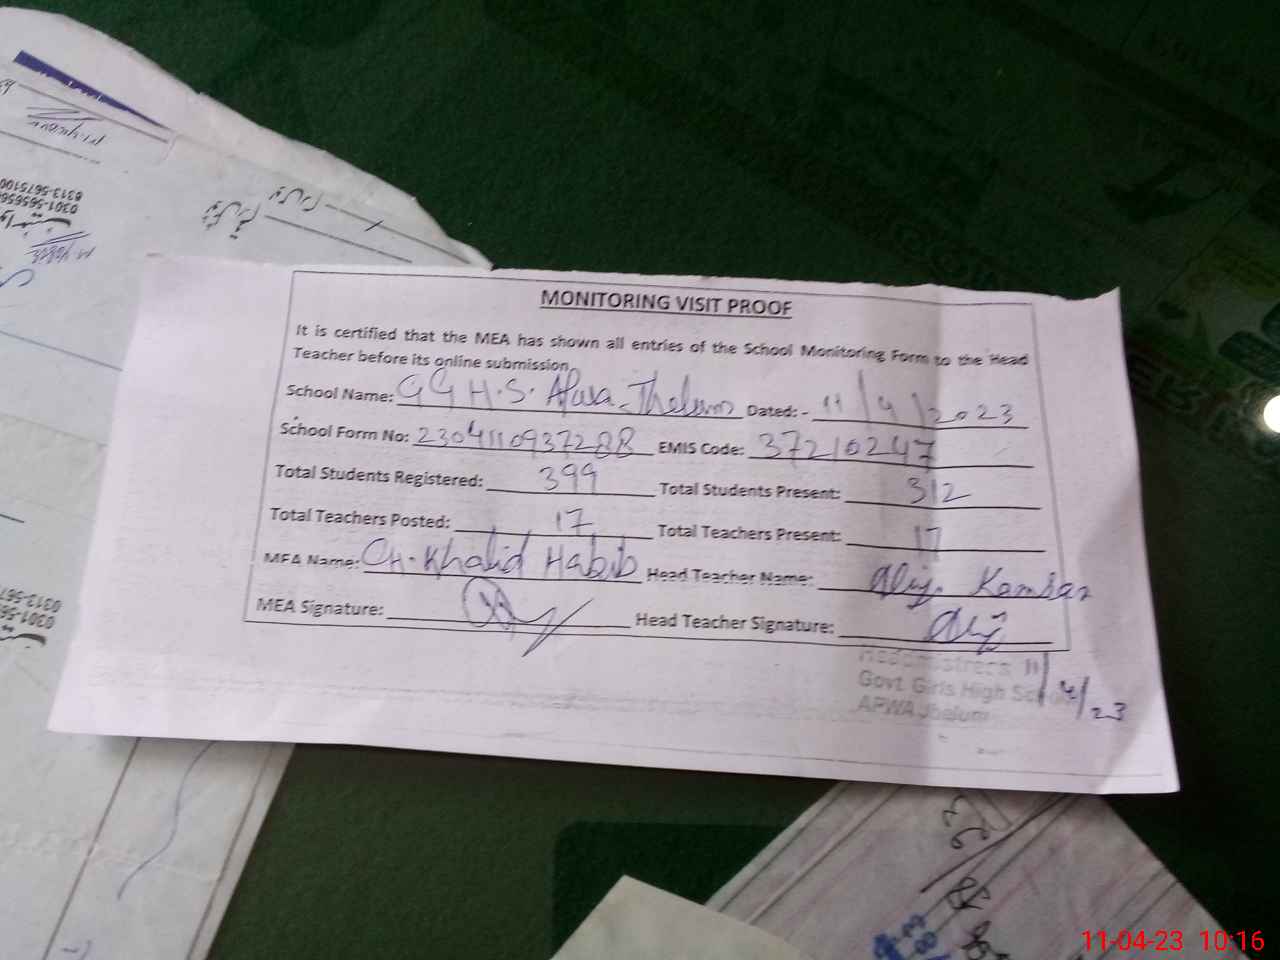 MONITORING VISIT PROOF
It is certified that the MEA has shown all entries of the School Monitoring Form to the Head
Teacher before its online submission.
School Name: GGH.S. Apwa Jhelum Dated: - 11/4/2023
School Form No: 2304110937288 EMIS Code: 37210247
Total Students Registered: 399 Total Students Present: 312
Total Teachers Posted: 17 Total Teachers Present: 17
MEA Name: CH. Khalid Habib Head Teacher Name:
MEA Signature: Head Teacher Signature:
Headmistress 11/4/23
Govt. Girls High School
APWA Jhelum
0301-5656566
0313-5675100
11-04-23 10:16